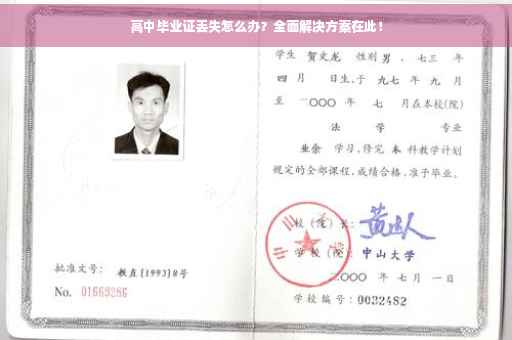 高中毕业证丢失怎么办？全面解决方案在此！
学生 贺文龙 性别 男 、七三 年
四 月 日生，于 九七 年 九 月
至 二〇〇〇 年 七 月在本校(院)
法 学 专业
业余 学习，修完 本 科教学计划
规定的全部课程，成绩合格，准予毕业。
校（院）长：
学校（院）：中山大学
二〇〇〇 年 七 月 一 日
批准文号： 教直[1993]8号
No. 01669286
学校编号：0032482